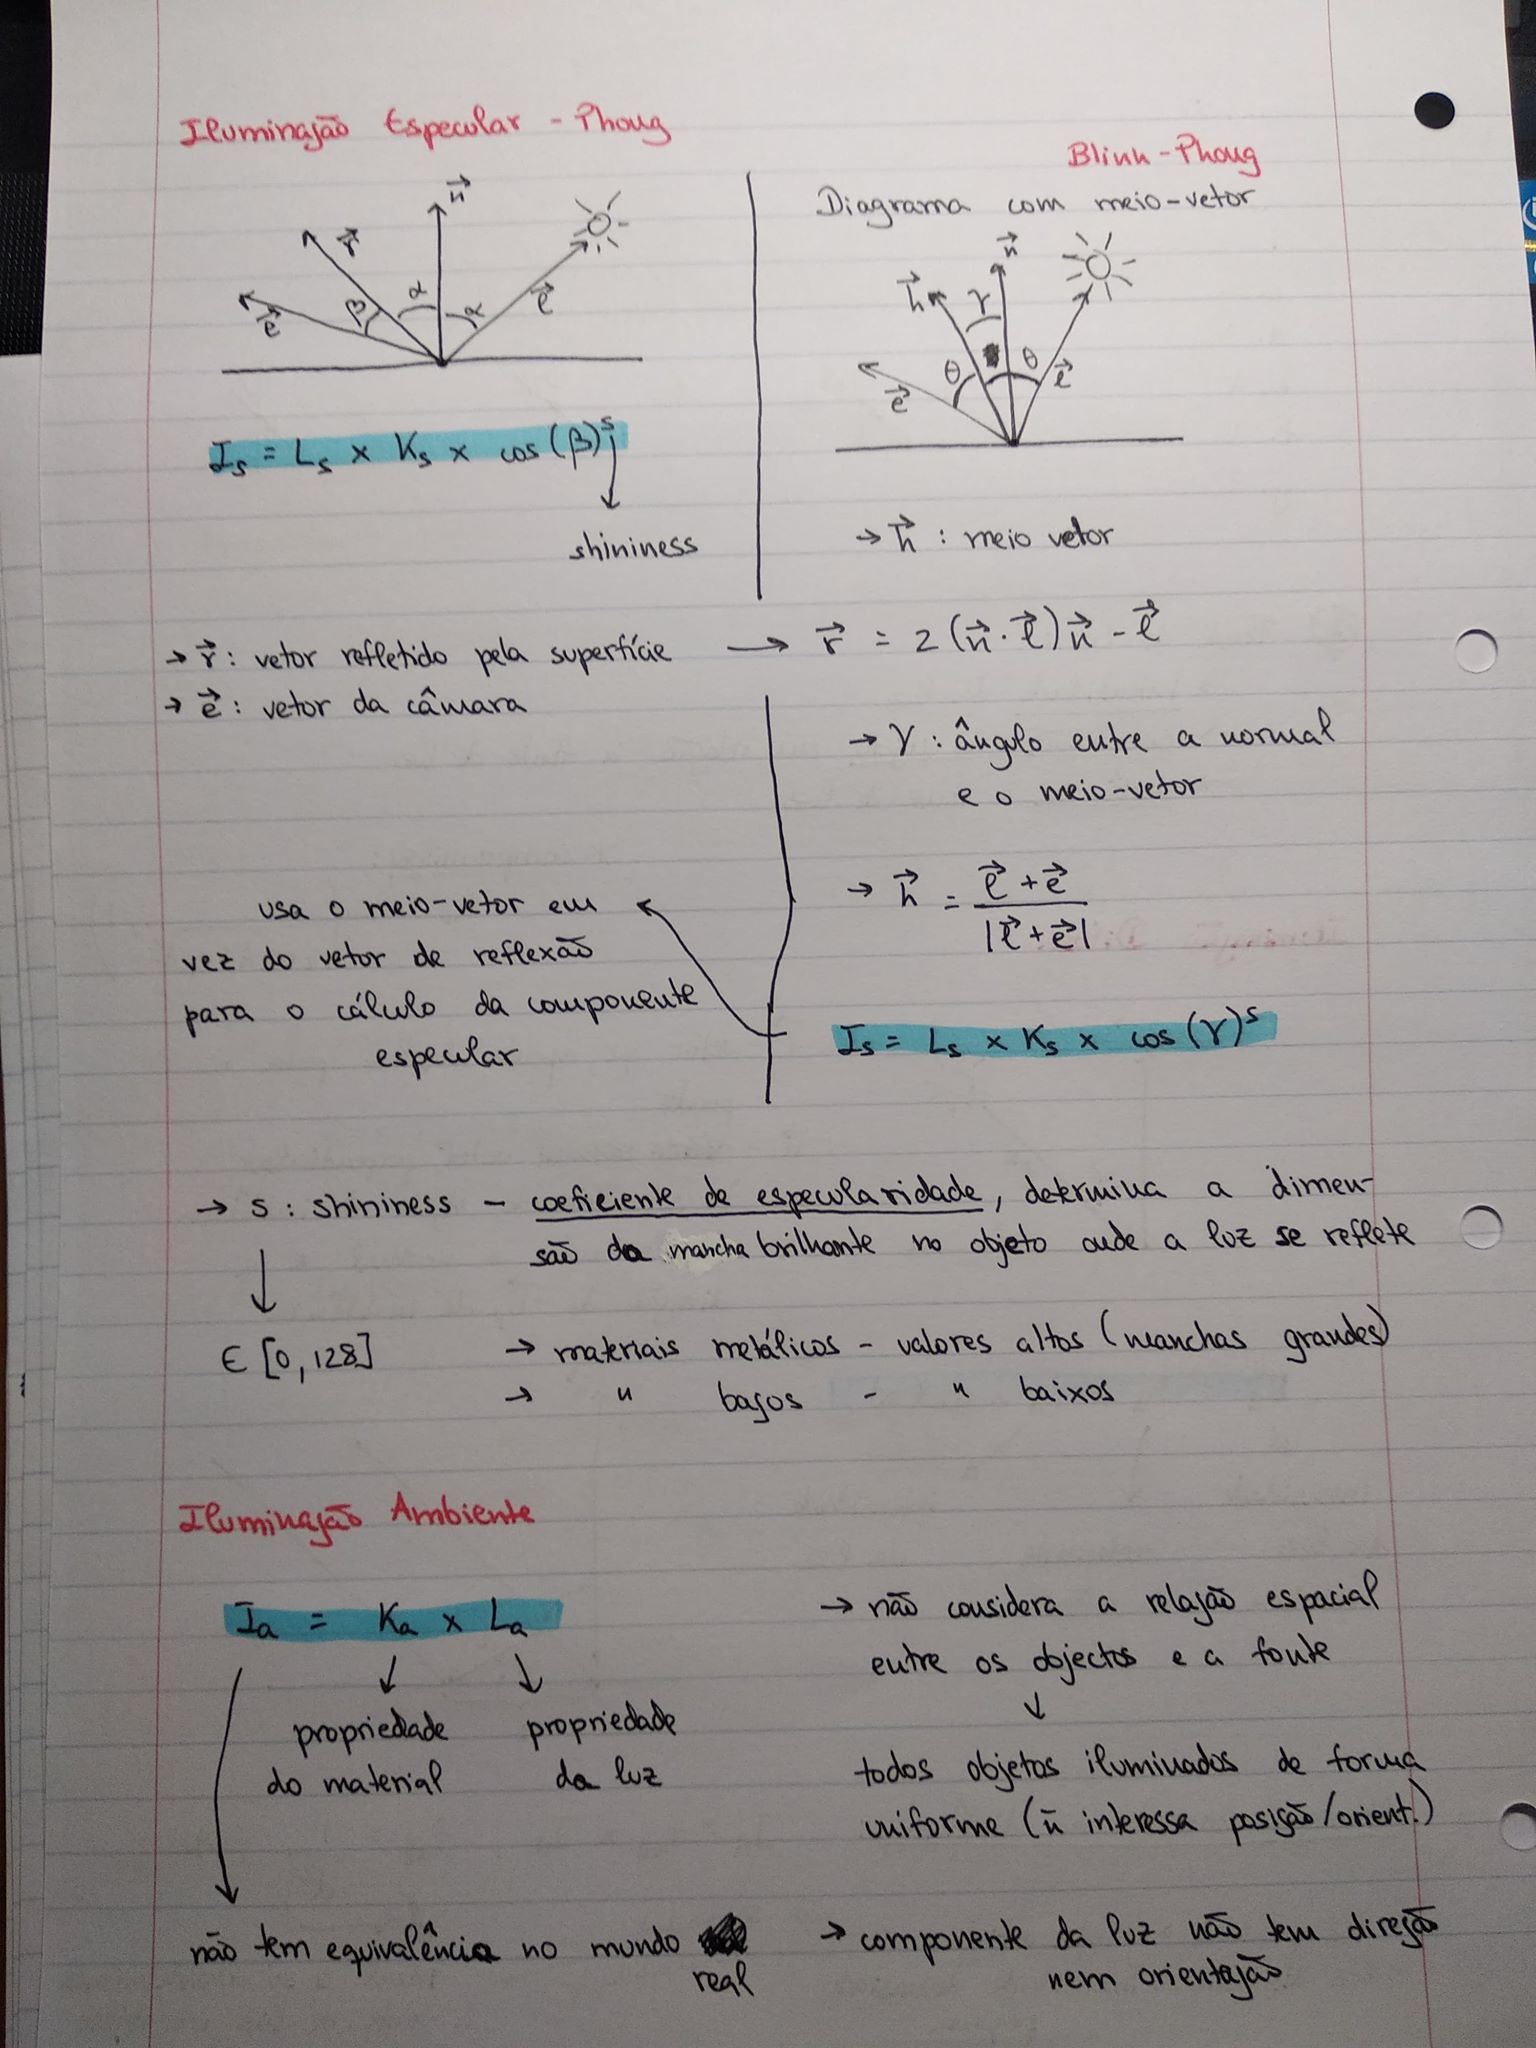 Iluminação Especular - Phong
n⃗
r⃗
α
α
β
e⃗
l⃗
Is = Ls x Ks x cos(β)^s
shininess
Blinn-Phong
Diagrama com meio-vetor
n⃗
h⃗
γ
θ
θ
e⃗
l⃗
→ h⃗ : meio vetor
→ r⃗ : vetor refletido pela superfície → r⃗ = 2(n⃗ · l⃗)n⃗ - l⃗
→ e⃗ : vetor da câmara
→ γ : ângulo entre a normal
e o meio-vetor
→ h⃗ = (l⃗ + e⃗) / |l⃗ + e⃗|
usa o meio-vetor em
vez do vetor de reflexão
para o cálculo da componente
especular
Is = Ls x Ks x cos(γ)^s
→ s : shininess - coeficiente de especularidade, determina a dimen-
são da mancha brilhante no objeto onde a luz se reflete
∈ [0,128]
→ materiais metálicos - valores altos (manchas grandes)
→ " baços - " baixos
Iluminação Ambiente
Ia = Ka x La
propriedade
do material
propriedade
da luz
não tem equivalência no mundo
real
→ não considera a relação espacial
entre os objectos e a fonte
↓
todos objetos iluminados de forma
uniforme (ñ interessa posição/orient.)
→ componente da luz não tem direção
nem orientação